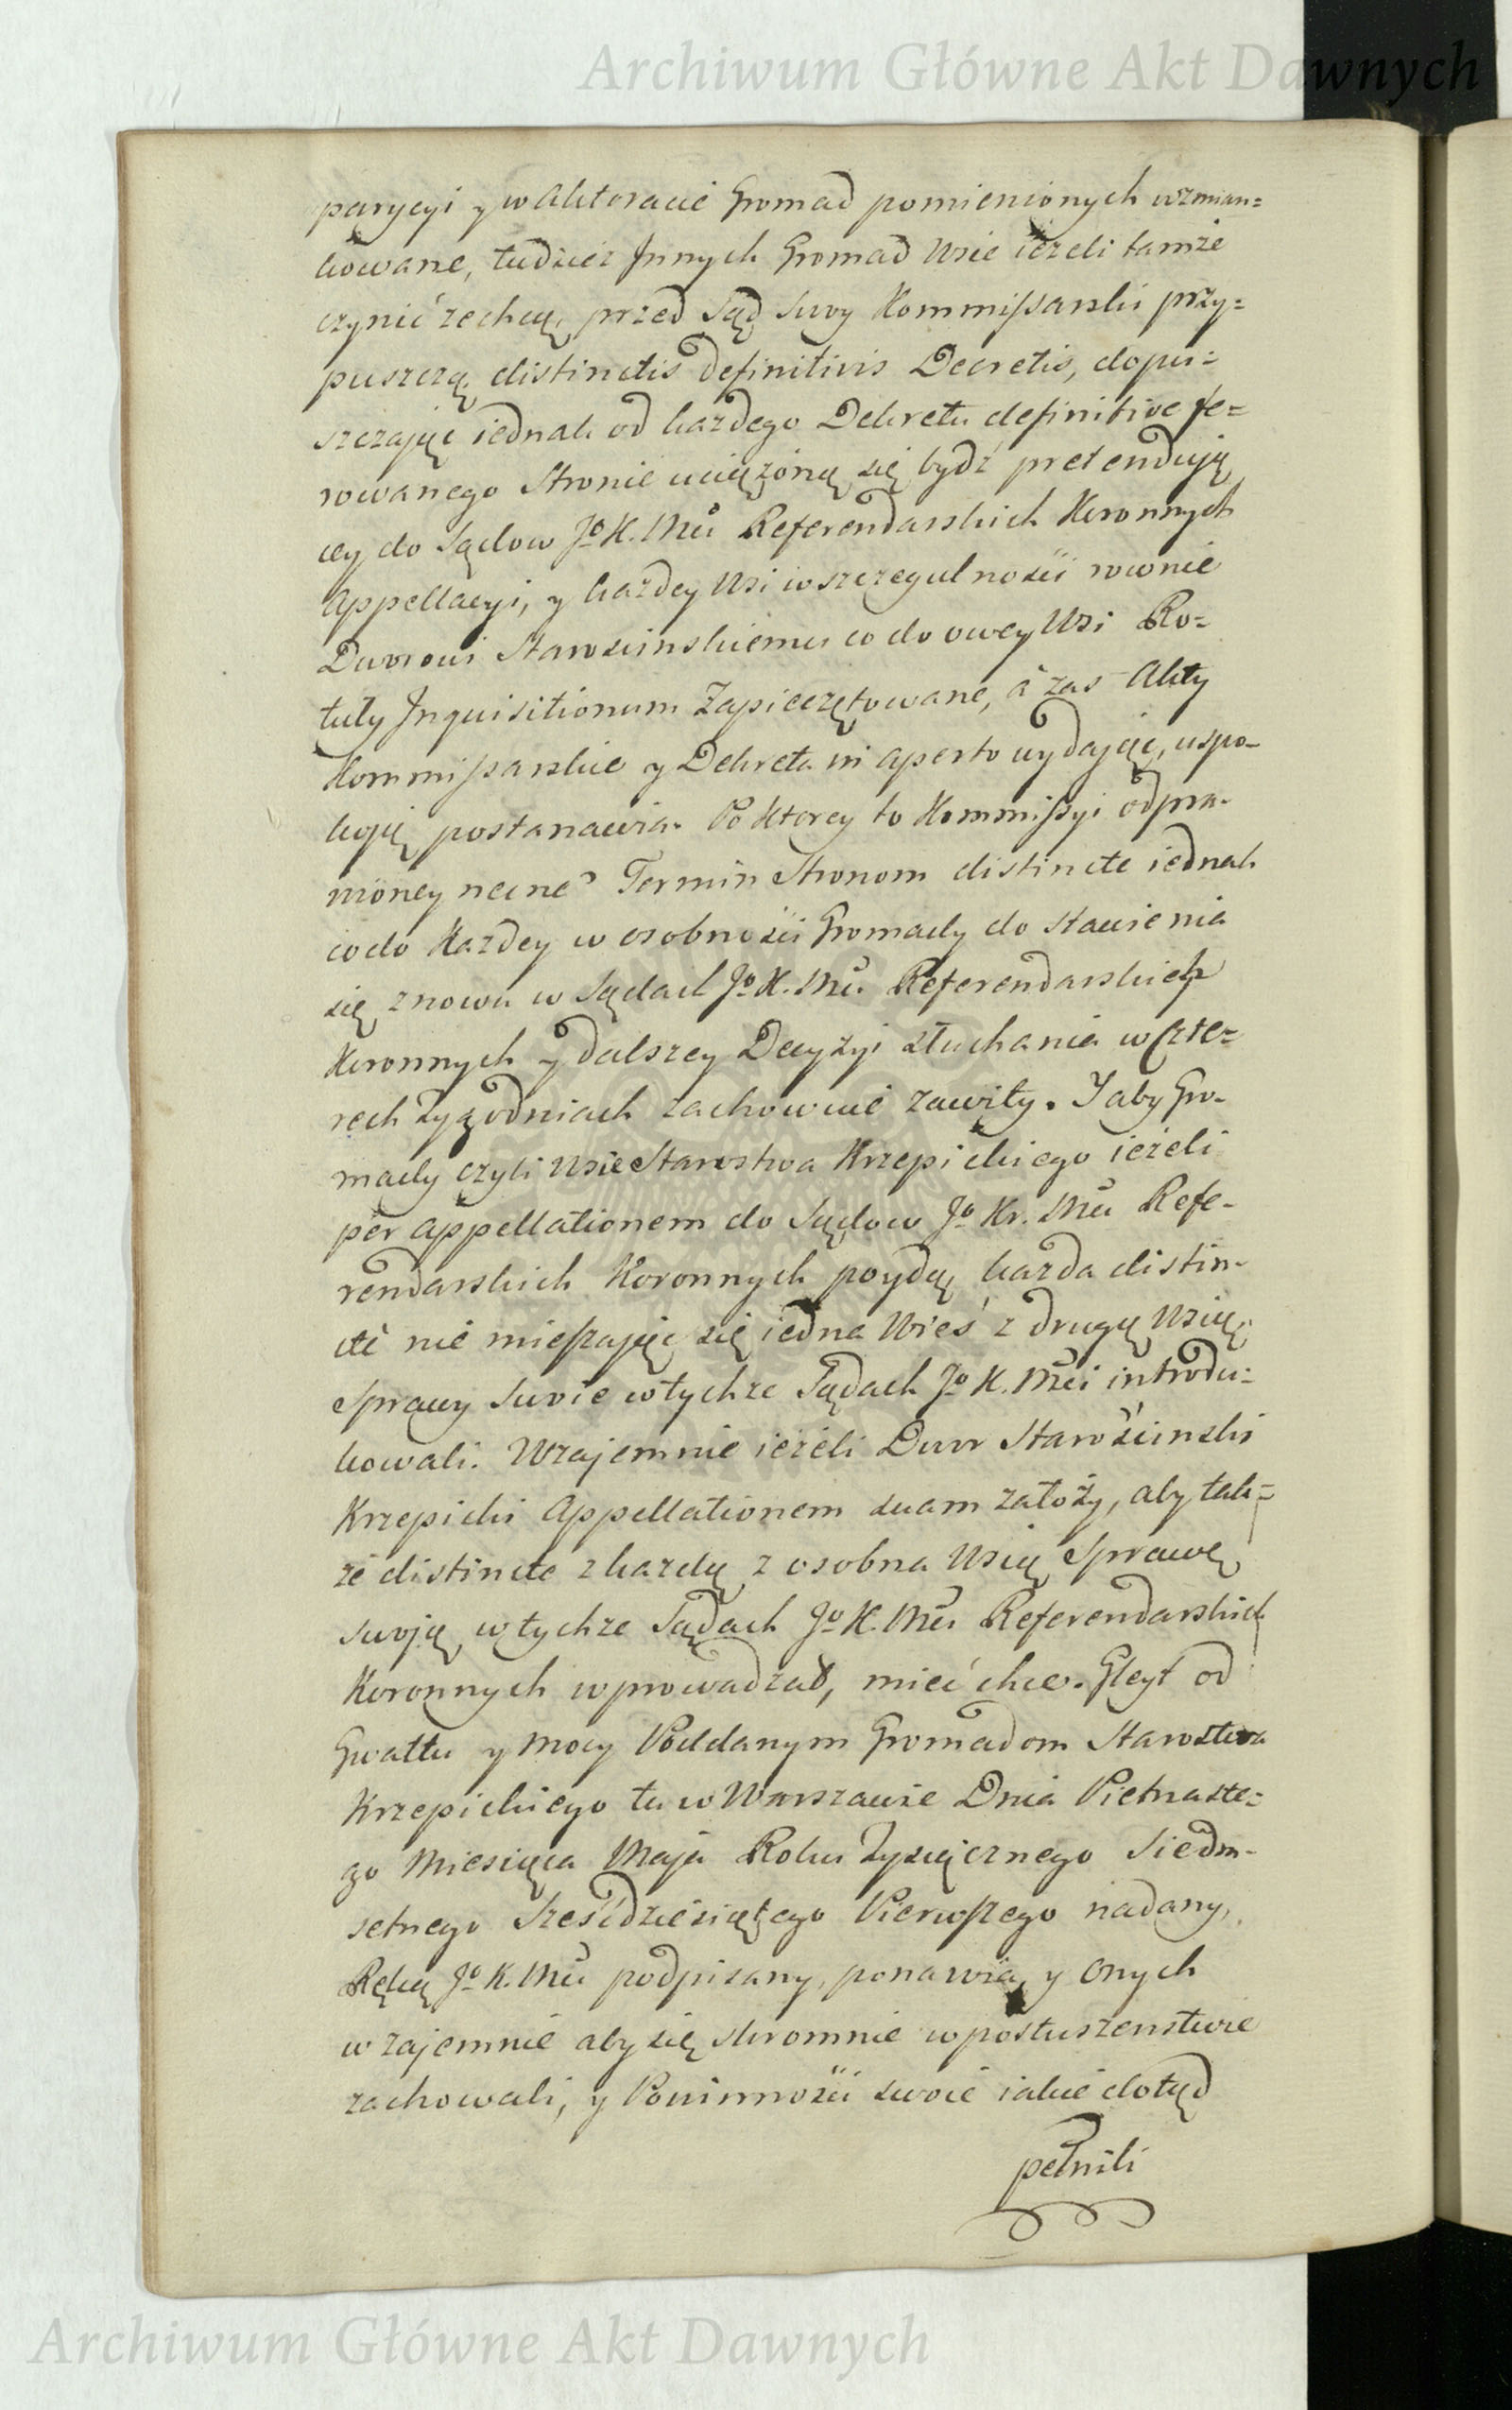 Archiwum Główne Akt Dawnych
parycyi y w Aktoracie Gromad pomienionych wzmian=
kowane, tudzież Innych Gromad Wsie ieżeli tamże
czynić zechcą, przed Sąd swoy Kommissarski przy=
puszczą, distinctis definitivis Decretis, dopu=
szczając iednak od każdego Dekretu definitive fe=
rowanego Stronie uciążoną się bydź pretenduią
cey do Sądow Jo K. Mci Referendarskich Koronnych
Appellacyi, y każdey Wsi w szczegulności rownie
Dworowi Starościnskiemu co do owey Wsi Ro=
tuły Inquisitionum Zapieczętowane, á zas Akty
Kommissarskie y Dekreta in aperto wydając, uspo-
koją postanawia. Po ktorey to Kommissyi odpra-
wioney necne Termin Stronom distincte iednak
co do Każdey w osobności Gromady do stawienia
się znowu w Sądach Jo K. Mci Referendarskich
Koronnych y dalszey Decyzyi słuchania w Czte=
rech Tygodniach zachowuie zawity. I aby Gro-
mady czyli Wsie Starostwa Krzepickiego ieżeli
per appellationem do Sądow Jo Kr. Mci Refe-
rendarskich Koronnych poydą, każda distin-
cte nie mieszając się iedna Wieś z drugą Wsią,
Sprawy swoie w tychże Sądach Jo K. Mci introdu=
kowali. Wzajemnie ieżeli Dwor Starościnski
Krzepicki Appellationem suam założy, aby tak=
że distincte z każdą z osobna Wsią Sprawę
swoją w tychże Sądach Jo K. Mci Referendarskich
Koronnych wprowadzał, mieć chce. Gleyt od
Gwałtu y Mocy Poddanym Gromadom Starostwa
Krzepickiego tu w Warszawie Dnia Pietnaste=
go Miesiąca Maja Roku Tysiącznego Siedm-
setnego Sześćdziesiątego Pierwszego nadany,
Ręką Jo K. Mci podpisany, ponawia, y onych
wzajemnie aby się skromnie w posłuszenstwie
zachowali, y Powinności swoie iakie dotąd
pełnili
Archiwum Główne Akt Dawnych